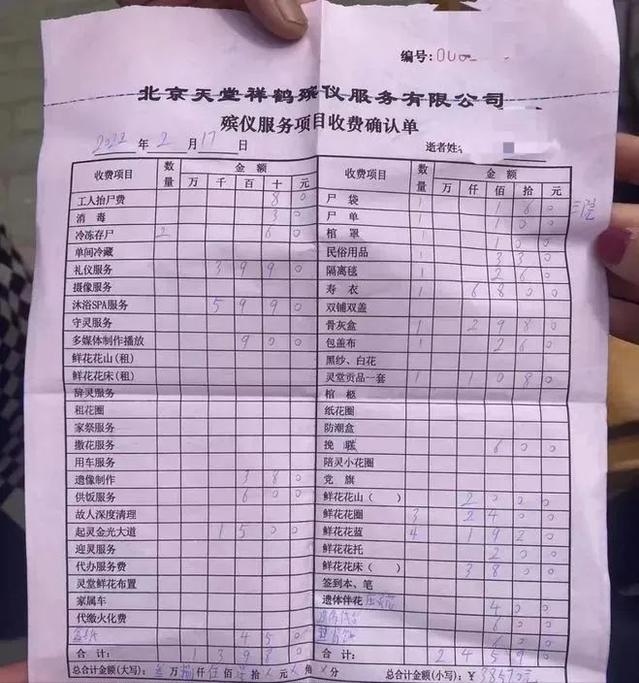 编号:
北京天堂祥鹤殡仪服务有限公司
殡仪服务项目收费确认单
2022 年 2 月 17 日
逝者姓
收费项目 数量 金额
万 千 百 十 元
工人抬尸费 8 0
消毒 3 0
冷冻存尸 2 6 0
单间冷藏
礼仪服务 3 9 9 0
摄像服务
沐浴SPA服务 5 9 9 0
守灵服务
多媒体制作播放 9 0 0
鲜花花山(租)
鲜花花床(租)
辞灵服务
租花圈
家祭服务
撒花服务
用车服务
遗像制作 3 8 0
供饭服务 6 0 0
故人深度清理
起灵金光大道 1 5 0 0
迎灵服务
代办服务费
灵堂鲜花布置
家属车
代缴火化费
4 5 0
合计: 1 3 9 8 0
收费项目 数量 金额
万 仟 佰 拾 元
尸袋 1 1 6 0
尸单 1 1 0 0
棺罩 1 1 0 0
民俗用品 3 3 0
隔离毯 1 2 6 0
寿衣 1 6 8 0 0
双铺双盖
骨灰盒 1 2 9 8 0
包盖布 1 2 6 0
黑纱、白花
灵堂贡品一套 1 1 0 8 0
棺柩
纸花圈
防潮盒
挽联 6 0 0
陪灵小花圈
党旗
鲜花花山( ) 2 0 0 0
鲜花花圈 3 2 4 0 0
鲜花花蓝 4 1 9 2 0
鲜花花托 2 0 0
鲜花花床( ) 3 8 0 0
签到本、笔
遗体伴花 4 0 0
6 0 0
6 0 0
合计: 2 4 5 9 0
总合计金额(大写): 叁万捌仟伍佰柒拾元 角 分
总合计金额(小写): ¥38570元